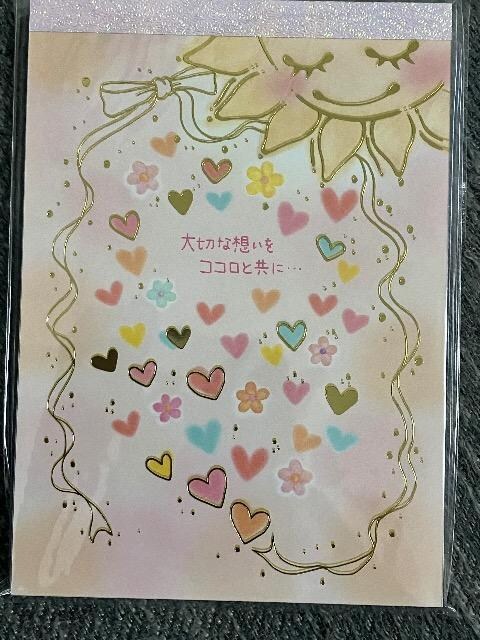 大切な想いを
ココロと共に…